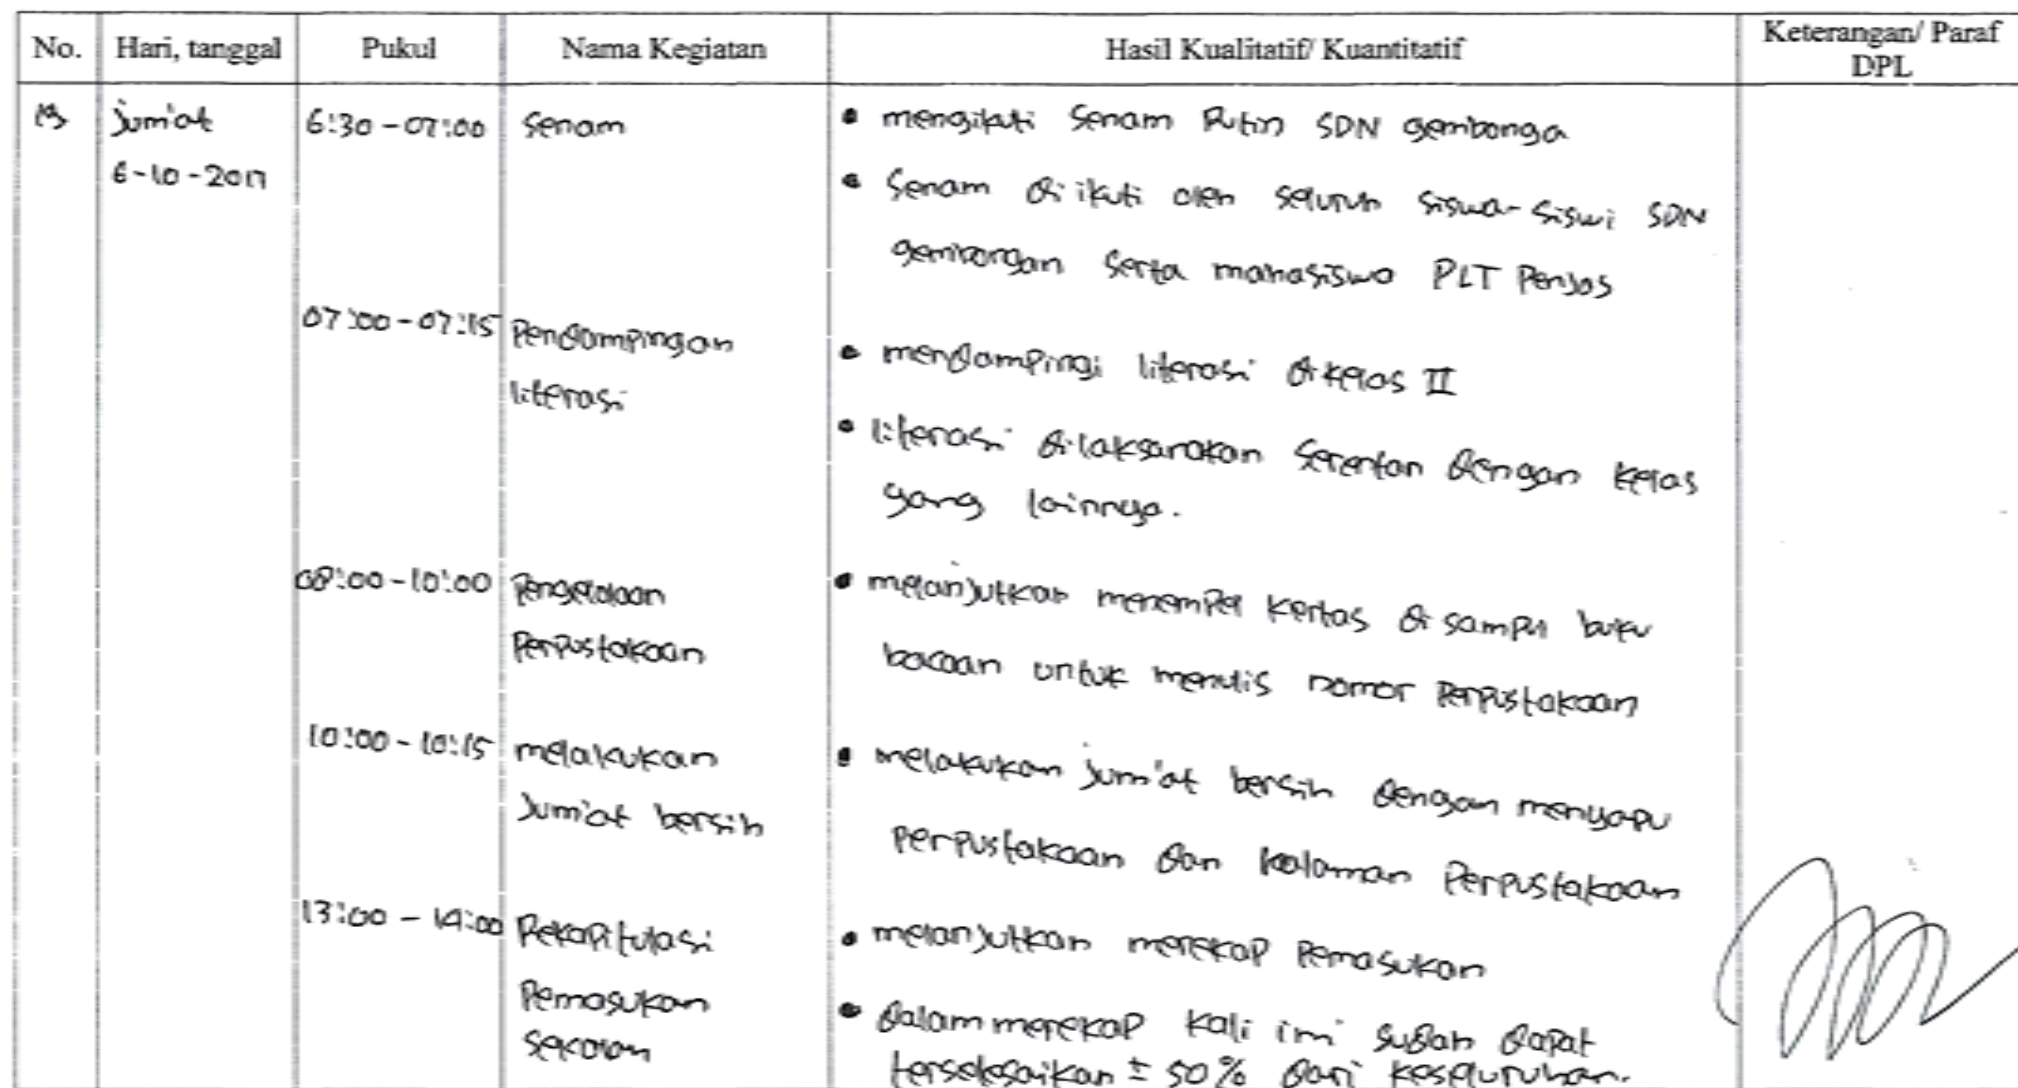 No. Hari, tanggal Pukul Nama Kegiatan Hasil Kualitatif/ Kuantitatif Keterangan/ Paraf
DPL
jum'at 6:30 - 07:00 Senam • mengikuti Senam Rutin SDN gembonga
6-10-2017 • Senam di ikuti oleh seluruh siswa-siswi SDN
gembongan serta mahasiswa PLT Penjas
07:00 - 07:15 Pendampingan • mendampingi literasi dikelas II
literasi • literasi dilaksanakan serentan dengan kelas
yang lainnya.
08:00 - 10:00 Pengelolaan • melanjutkan menempel kertas di sampul buku
Perpustakaan bacaan untuk menulis nomor Perpustakaan
10:00 - 10:15 melakukan • melakukan jum'at bersih dengan menyapu
Jum'at bersih perpustakaan dan halaman Perpustakaan
13:00 - 14:00 Rekapitulasi • melanjutkan merekap Pemasukan
Pemasukan • dalam merekap kali ini sudah dapat
sekolah terselesaikan ± 50% dari keseluruhan.